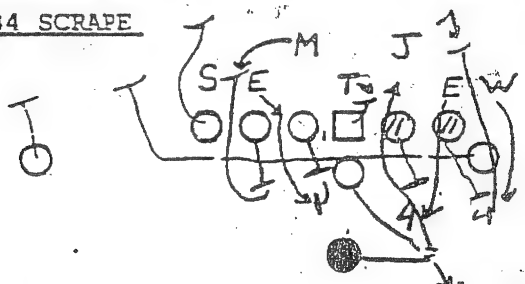 34 SCRAPE
M J
S E T E W